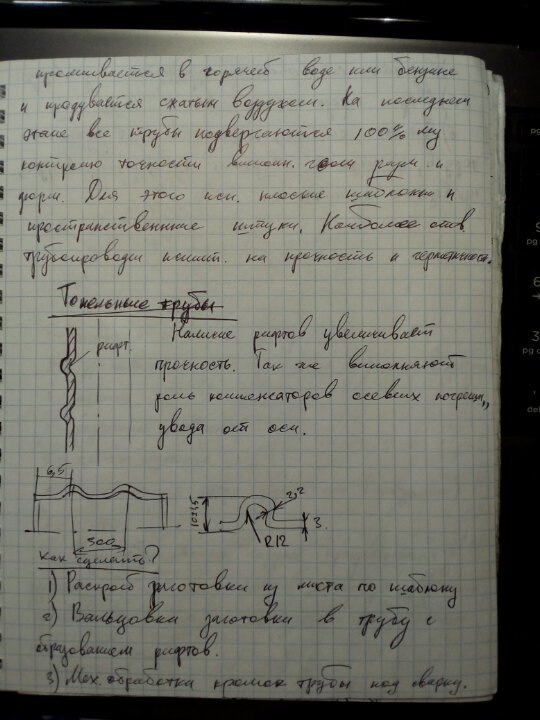 промывается в горячей воде или бензине
и продувается сжатым воздухом. На последнем
этапе все трубы подвергаются 100% му
контролю точности выполн. геом разм. и
форм. Для этого исп. плоские шаблоны и
пространственные штуки. Наиболее отв.
трубопроводы испыт. на прочность и герметичность.
Тонельные трубы
рифт.
Наличие рифтов увеличивает
прочность. Так же выполняют
роль компенсаторов осевых погрешн,,
увода от оси.
6,5
300
10±1,5
2,2
3
R12
Как сделать?
1) Раскрой заготовки из листа по шаблону
2) Вальцовка заготовки в трубу с
образованием рифтов.
3) Мех. обработка кромок трубы под сварку.